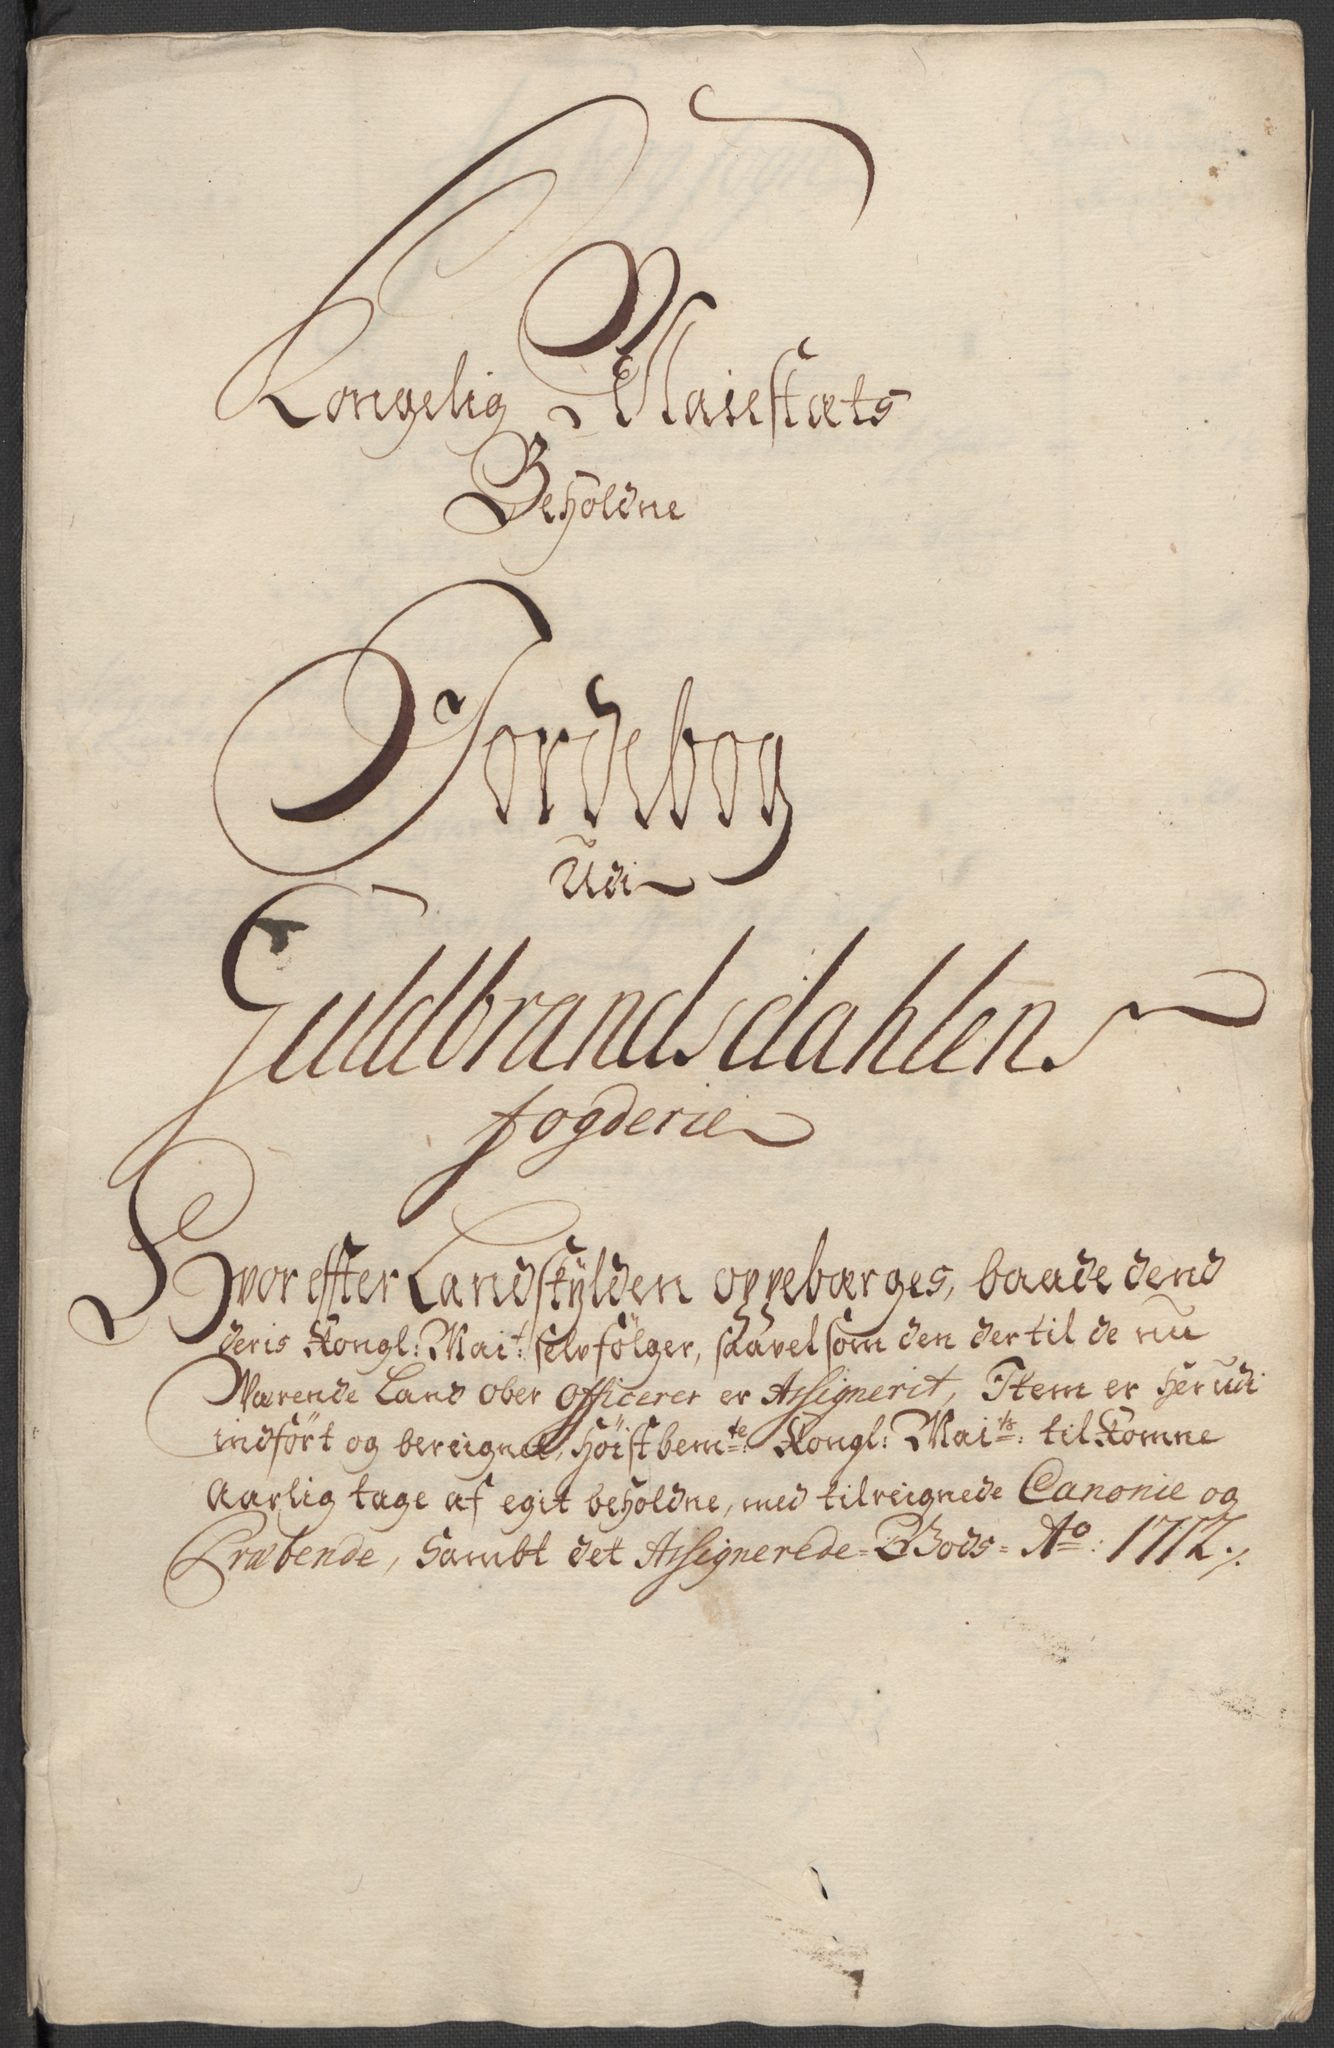 Kongelig Maiestæts
Beholdne
Jordebog
Udi
Guldbrandsdahlens
fogderie
Hvoreffter Landskylden oppebærges, baade dend
deris Kongl: Mai.t: self fölger, saavel som den der til de nu
Værende Land ober Officerer er Assignerit, Item er her udi
indfört og bereignet, Höistbem.te: Kongl: Mai.ts: til Komne
Aarlig tage af egit beholdne, med tilreignede Canonie og
Præbende, Sambt det Assignerede Gods Ao: 1712 ./.